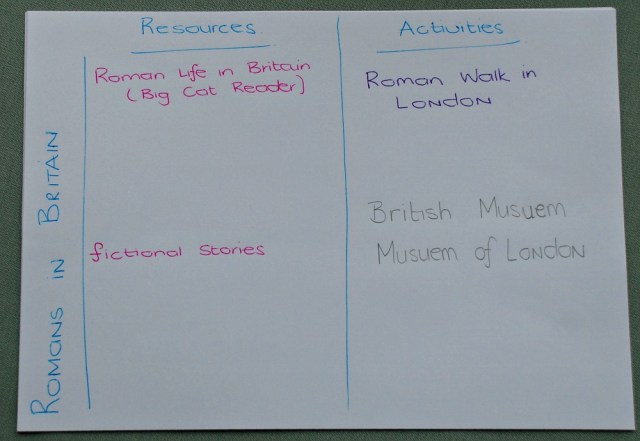 Resources
Activities
ROMANS IN BRITAIN
Roman Life in Britain
(Big Cat Reader)
fictional stories
Roman Walk in
LONDON
British Musuem
Musuem of LONDON